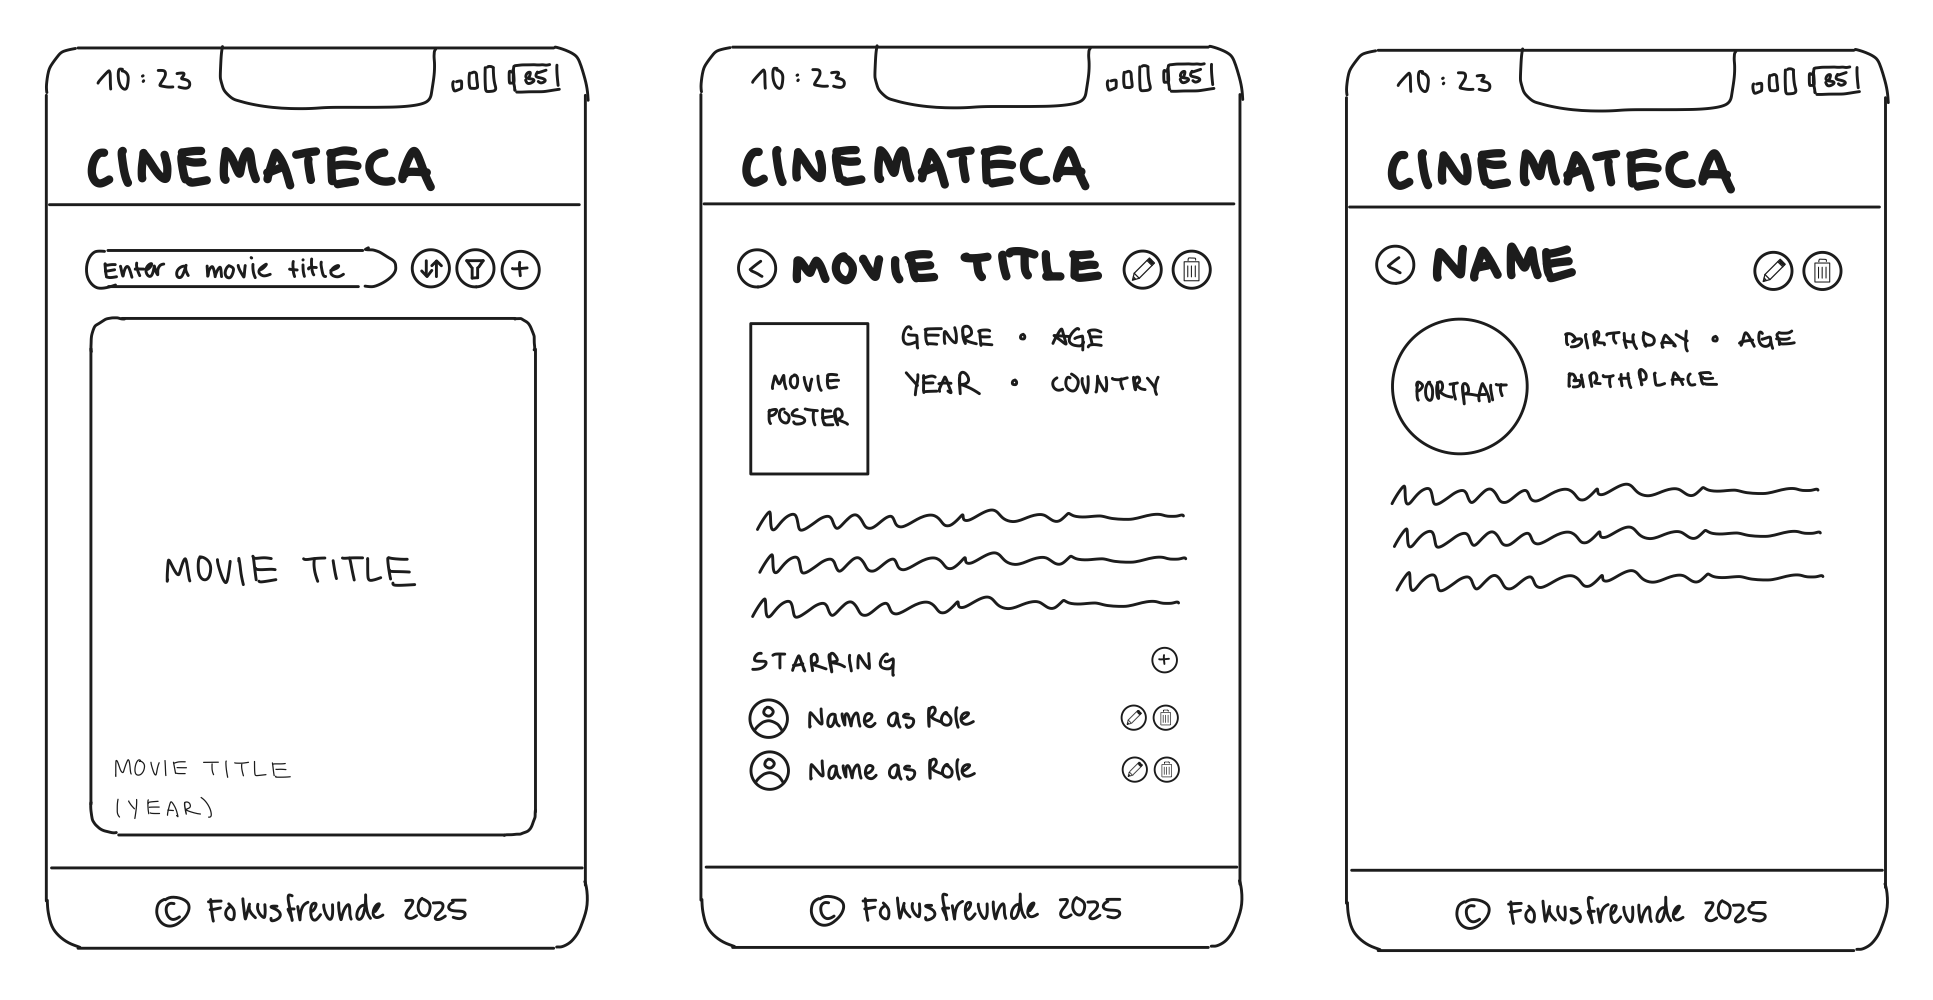 10:23
85
CINEMATECA
Enter a movie title
MOVIE TITLE
MOVIE TITLE
(YEAR)
© Fokusfreunde 2025
10:23
85
CINEMATECA
MOVIE TITLE
MOVIE
POSTER
GENRE • AGE
YEAR • COUNTRY
STARRING
Name as Role
Name as Role
© Fokusfreunde 2025
10:23
85
CINEMATECA
NAME
PORTRAIT
BIRTHDAY • AGE
BIRTHPLACE
© Fokusfreunde 2025